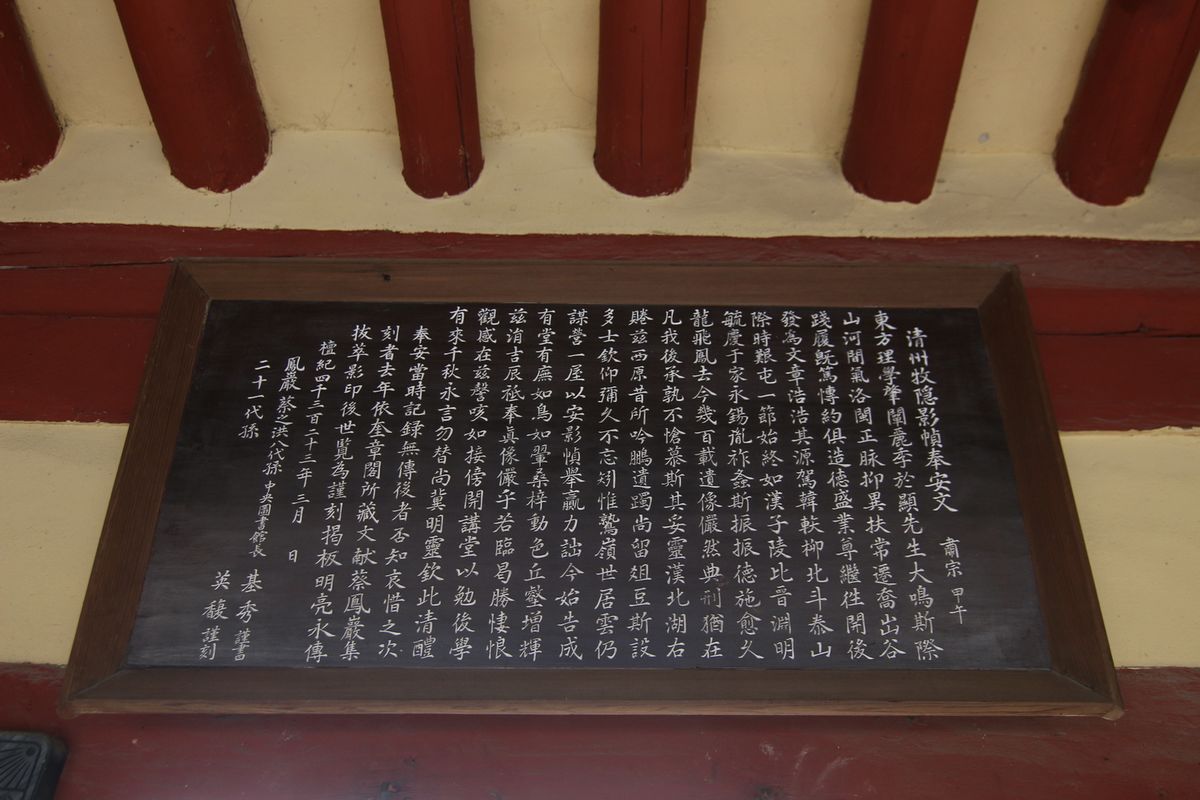 清州牧隱影幀奉安文 肅宗 甲午
東方理學肇闡麗季於顯先生大鳴斯際
山河間氣洛閩正脉抑異扶常遷喬出谷
踐履旣篤博約俱造德盛業尊繼徃開後
發為文章浩浩其源駕韓軼柳北斗泰山
際時艱屯一節始終如漢子陵比晋淵明
毓慶于家永錫胤祚螽斯振振德施愈久
龍飛鳳去今幾百載遺像儼然典刑猶在
凡我後承孰不愴慕斯其妥靈漢北湖右
睠茲西原昔所吟鵬遺躅尚留俎豆斯設
多士欽仰彌久不忘矧惟鷲嶺世居雲仍
謀營一屋以安影幀舉贏力詘今始告成
有堂有廡如鳥如翬桑梓動色丘壑增輝
茲涓吉辰祗奉眞像儼乎若臨曷勝悽悢
觀感在茲謦咳如接傍開講堂以勉後學
有來千秋永言勿替尚冀明靈欽此清醴
奉安當時記録無傳後者否知哀惜之次
刻者去年依奎章閣所藏文献蔡鳳巖集
抜萃影印後世覧為謹刻揭板明亮永傳
檀紀四千三百二十三年 三月 日
鳳巖蔡之洪八代孫 中央圖書館長 基秀 謹書
二十一代孫 英馥 謹刻